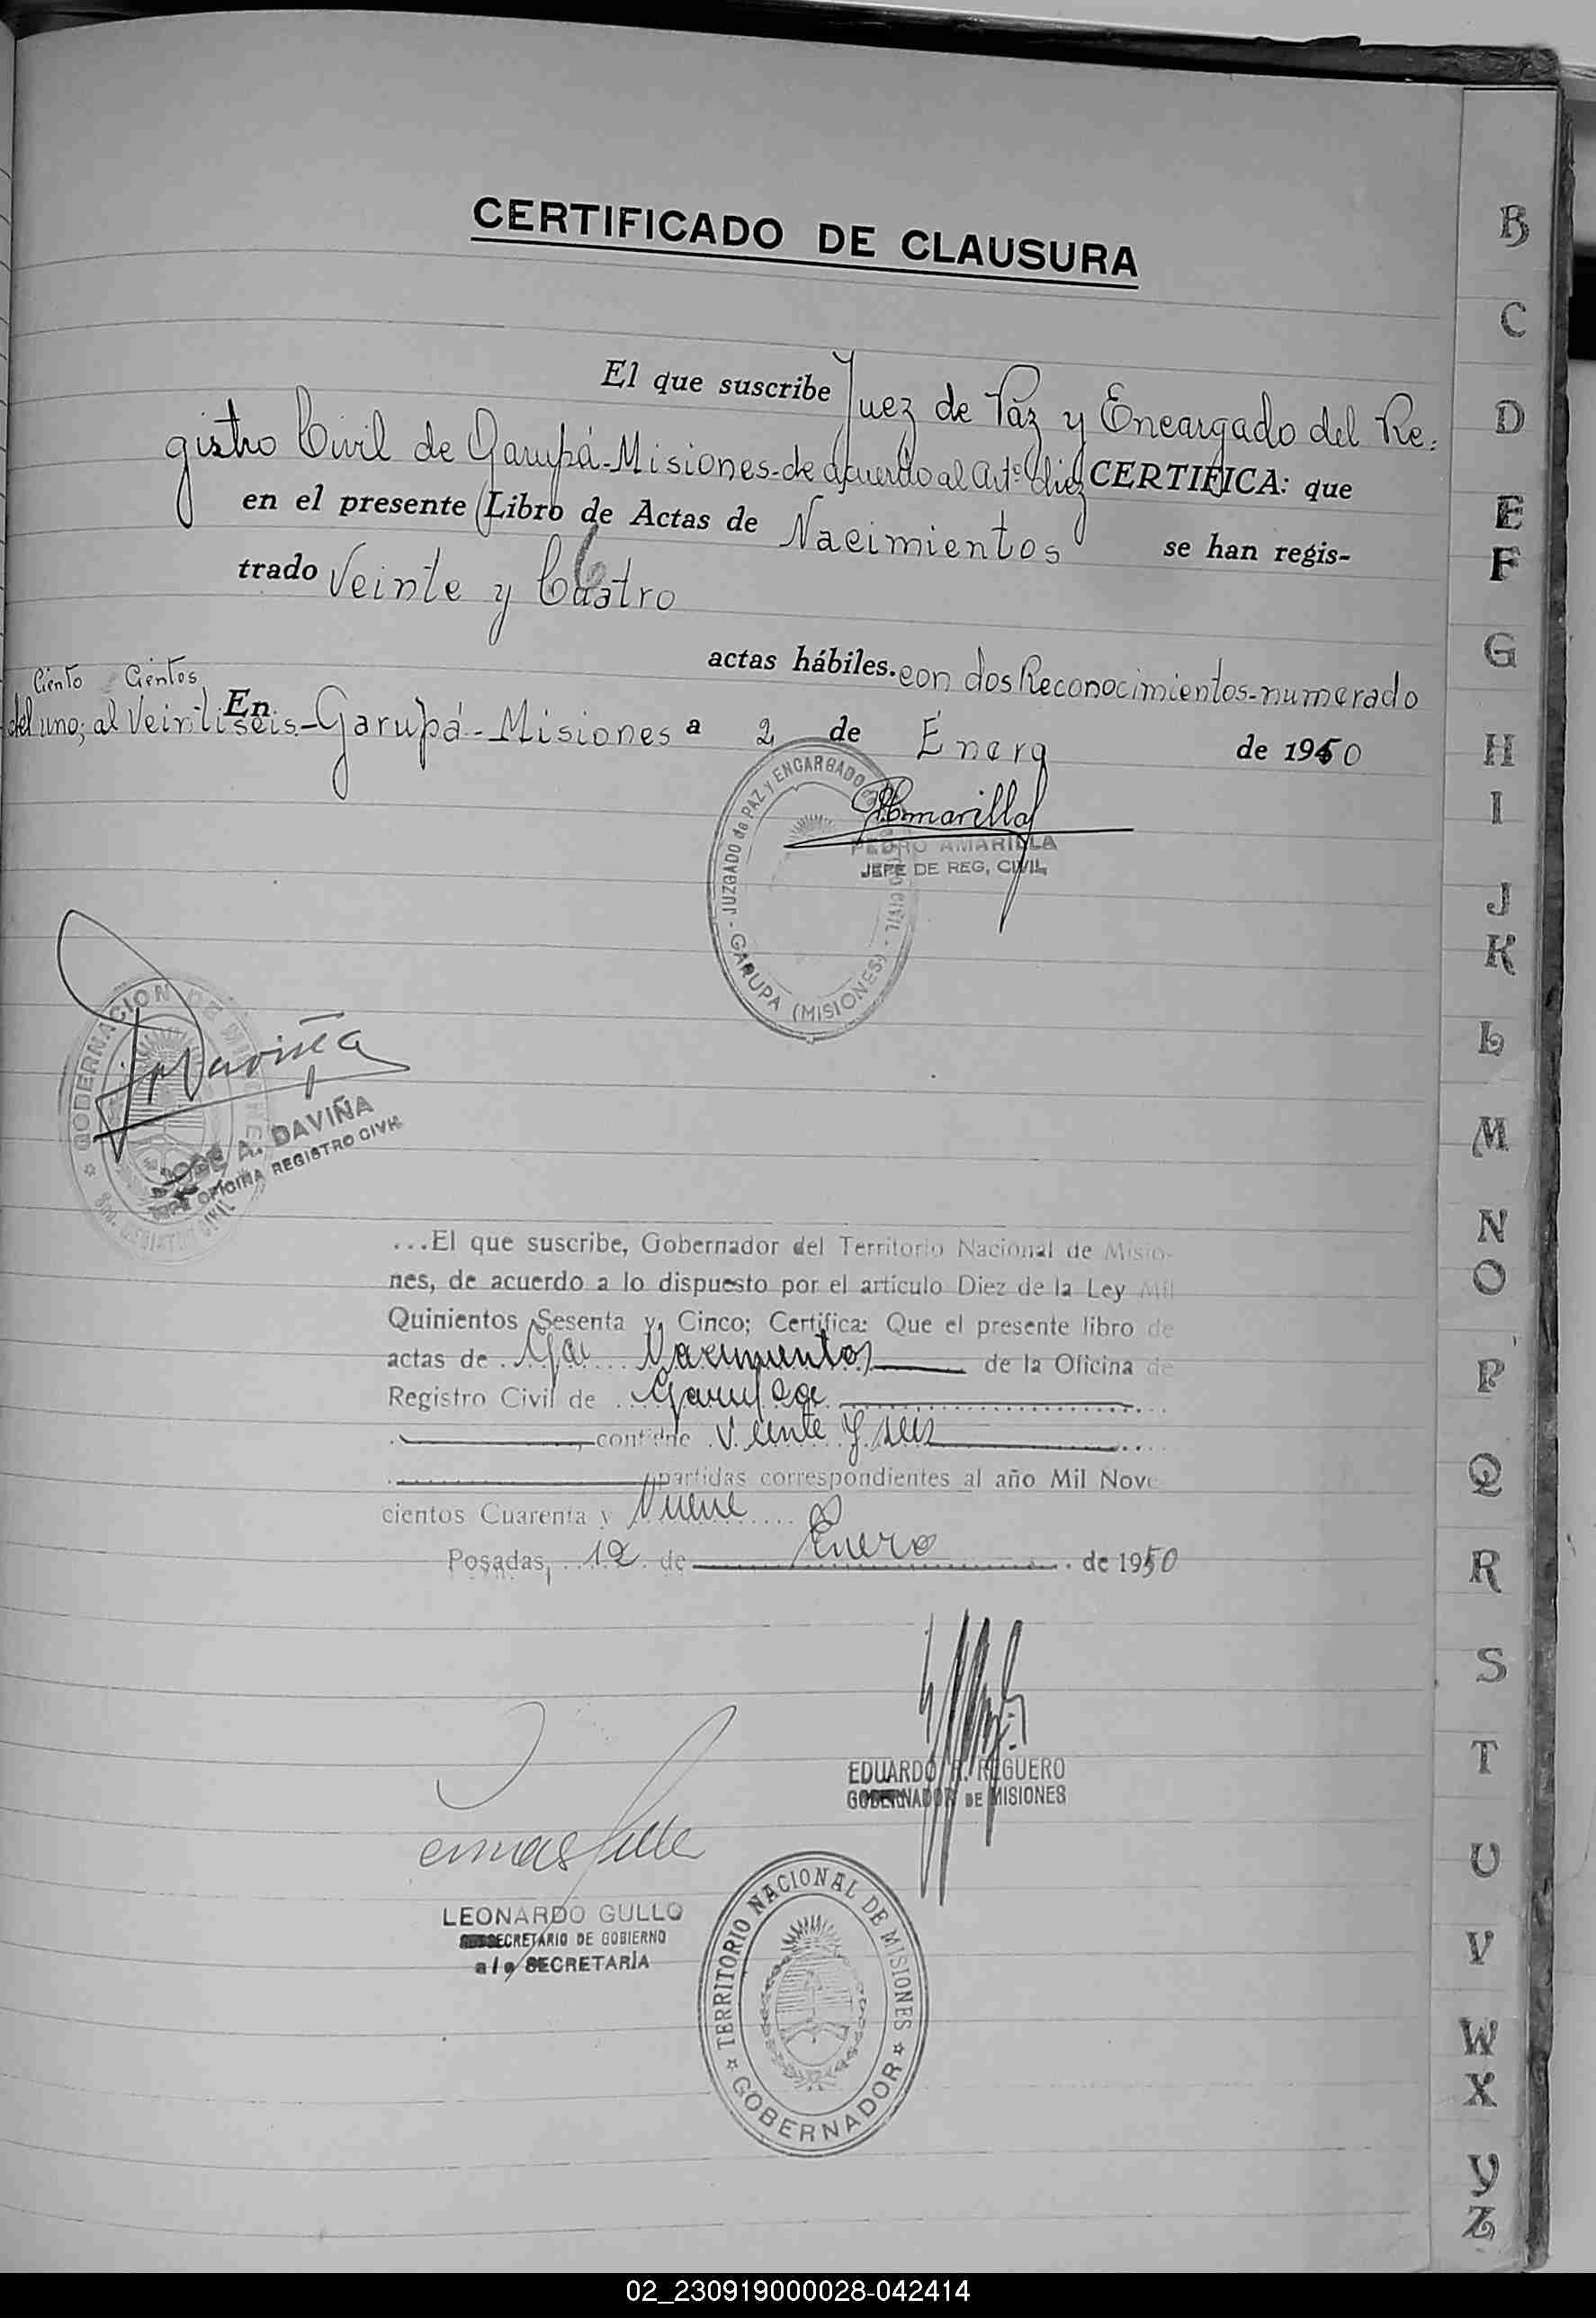 CERTIFICADO DE CLAUSURA
El que suscribe Juez de Paz y Encargado del Re-
gistro Civil de Garupá-Misiones-de acuerdo al Art.º diez CERTIFICA: que
en el presente Libro de Actas de Nacimientos se han regis-
trado Veinte y Cuatro
actas hábiles. con dos Reconocimientos-numerado
Ciento Cientos
del uno; al Veintiseis.- En Garupá - Misiones a 2 de Enero de 1950
JUZGADO de PAZ y ENCARGADO CIVIL - GARUPA (MISIONES) -
PAmarilla
PEDRO AMARILLA
JEFE DE REG, CIVIL
GOBERNACION DE MISIONES
JADaviña
JOSE A. DAVIÑA
JEFE OFICINA REGISTRO CIVIL
...El que suscribe, Gobernador del Territorio Nacional de Misio-
nes, de acuerdo a lo dispuesto por el artículo Diez de la Ley Mil
Quinientos Sesenta y Cinco; Certifica: Que el presente libro de
actas de Nacimientos de la Oficina de
Registro Civil de Garupa
, contiene Veinte y seis
partidas correspondientes al año Mil Nove
cientos Cuarenta y Nueve
Posadas, 12 de Enero de 1950
EDUARDO REGUERO
GOBERNADOR DE MISIONES
LEONARDO GULLO
SUBSECRETARIO DE GOBIERNO
a/c SECRETARÍA
TERRITORIO NACIONAL DE MISIONES
GOBERNADOR
B
C
D
E
F
G
H
I
J
K
L
M
N
O
P
Q
R
S
T
U
V
W
X
Y
Z
02_230919000028-042414